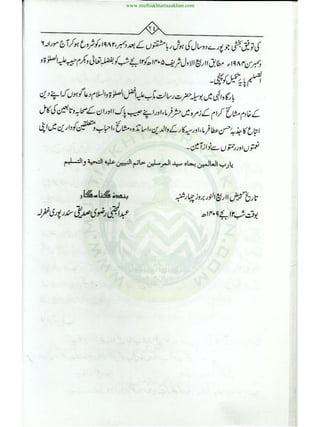 www.muftiakhtarrazakhan.com
۲۶
کی توفیق بخشی جو پورے دو سال کی ہوش ربا مشقتوں کے بعد دسمبر ۱۹۸۲ء کو شروع ہو کر آج مورخہ ۶
دسمبر ۱۹۸۴ء مطابق ۱۱ ربیع الاول شریف ۱۴۰۵ھ ۱۲ بجے شب کو بفضلہ تعالیٰ و بکرم حبیبہ علیہ الصلوٰۃ و
التسلیم پایہ تکمیل کو پہنچی۔
بارگاہ الٰہی میں بوسیلہ حضرت رسالت مآب علیہ افضل الصلوٰۃ والسلام دعا گو ہوں کہ اپنے دین
کے خادم مشائخ کرام کے زمرہ میں حشر فرما، اور اپنے حبیب پاک اور ان کے صحابہ و تابعین کی کامل
اتباع کا جذبہ حسن عطا فرما، اور سیہ کار کے والدین، اساتذہ، مشائخ، احباب و متعلقین کو دارین میں اپنی
نعمتوں اور رحمتوں سے نواز آمین۔
یارب العالمین بجاه سید المرسلین خاتم النبیین علیه التحیة والتسلیم
بندۂ گناہگار
تاریخ ۱۱ ربیع النور بروز چہار شنبہ
عبدالمجتبیٰ رضوی صدیقی سندر پوری غفرلہ
بوقت شب ۱۲ بجے ۱۴۰۹ھ